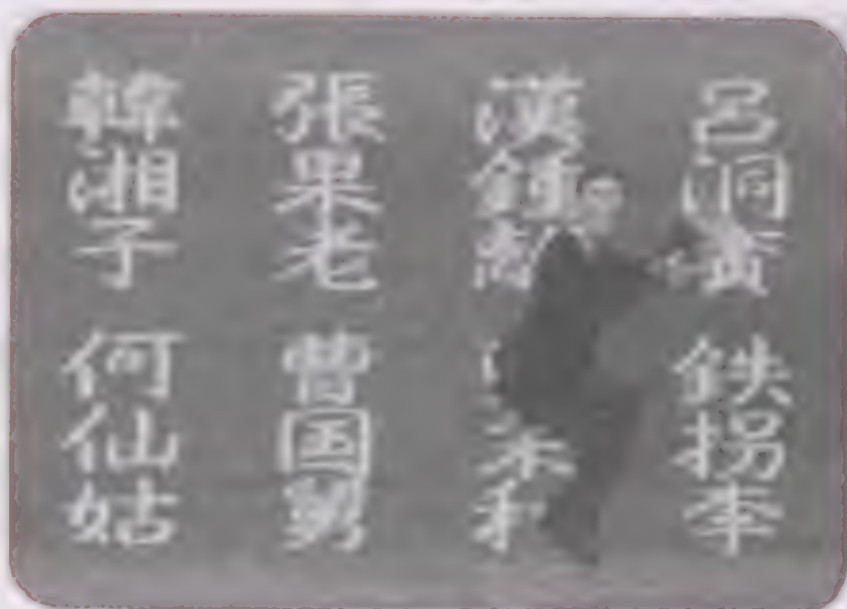 呂洞賓
鉄拐李
漢鍾
采和
張果老
曹国舅
韓湘子
何仙姑